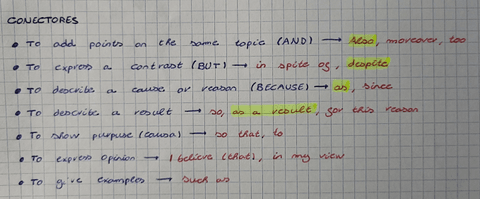 CONECTORES
• To add points on the same topic (AND) → Also, moreover, too
• To express a contrast (BUT) → in spite of, despite
• To describe a cause or reason (BECAUSE) → as, since
• To describe a result → so, as a result, for this reason
• To show purpuse (causa) → so that, to
• To express opinion → I believe (that), in my view
• To give examples → such as